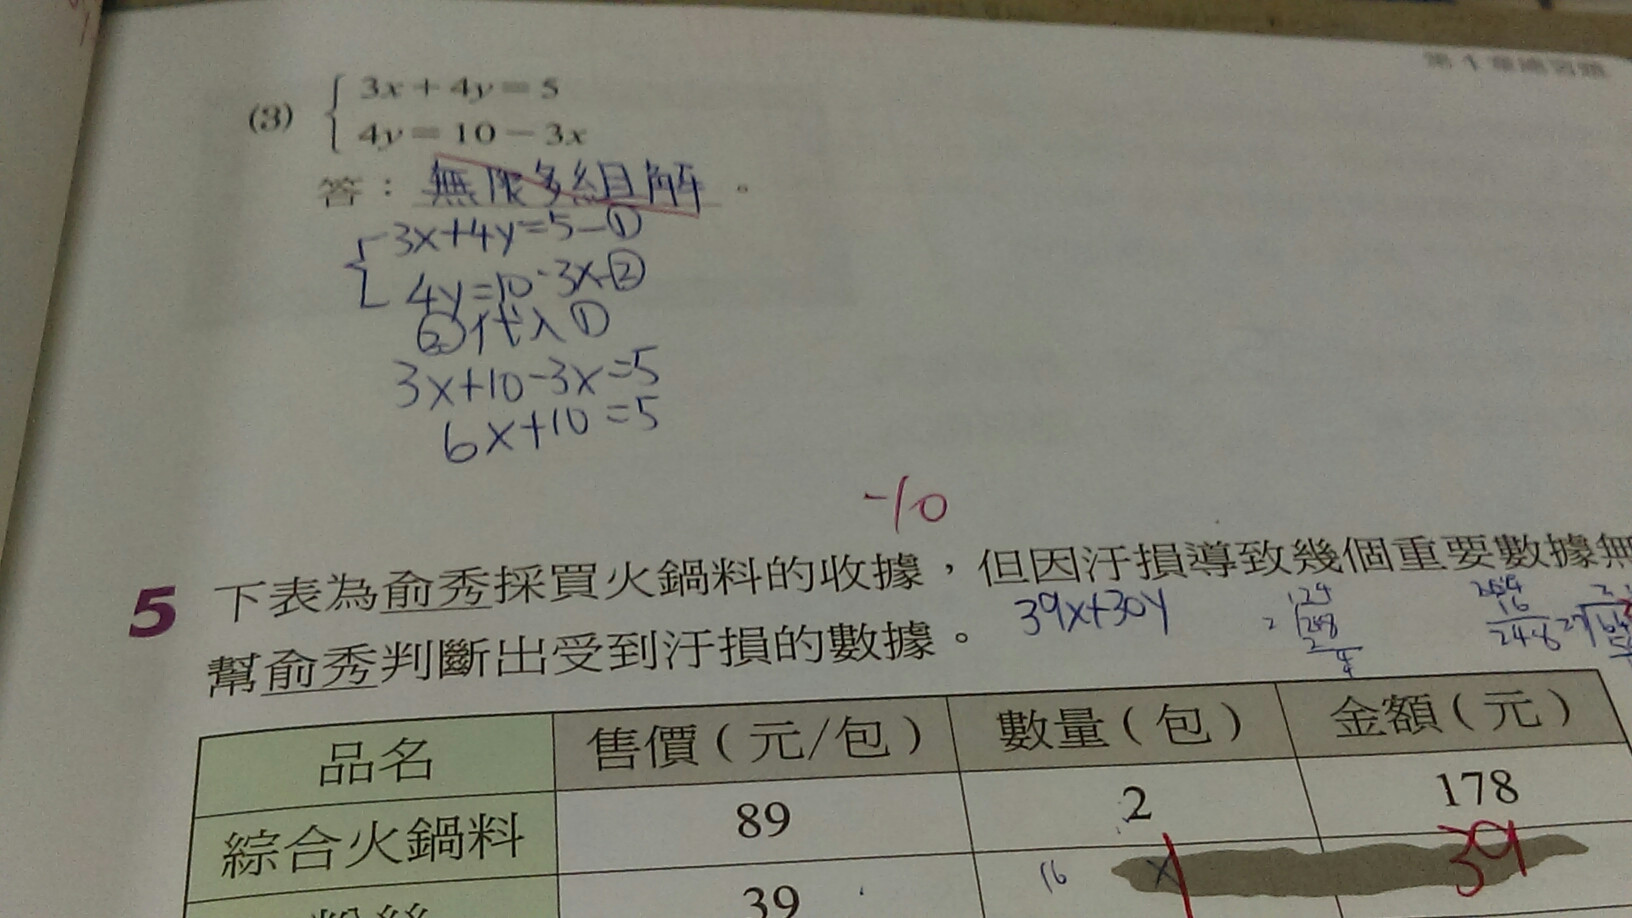 第1章總習題
(3) { 3x+4y=5
4y=10-3x
答：無限多組解。
{ 3x+4y=5-①
4y=10-3x-②
②代入①
3x+10-3x=5
6x+10=5
-10
5 下表為俞秀採買火鍋料的收據，但因汙損導致幾個重要數據無
39x+30y
幫俞秀判斷出受到汙損的數據。
品名 售價（元/包） 數量（包） 金額（元）
綜合火鍋料 89 2 178
粉絲 39 16 x 39